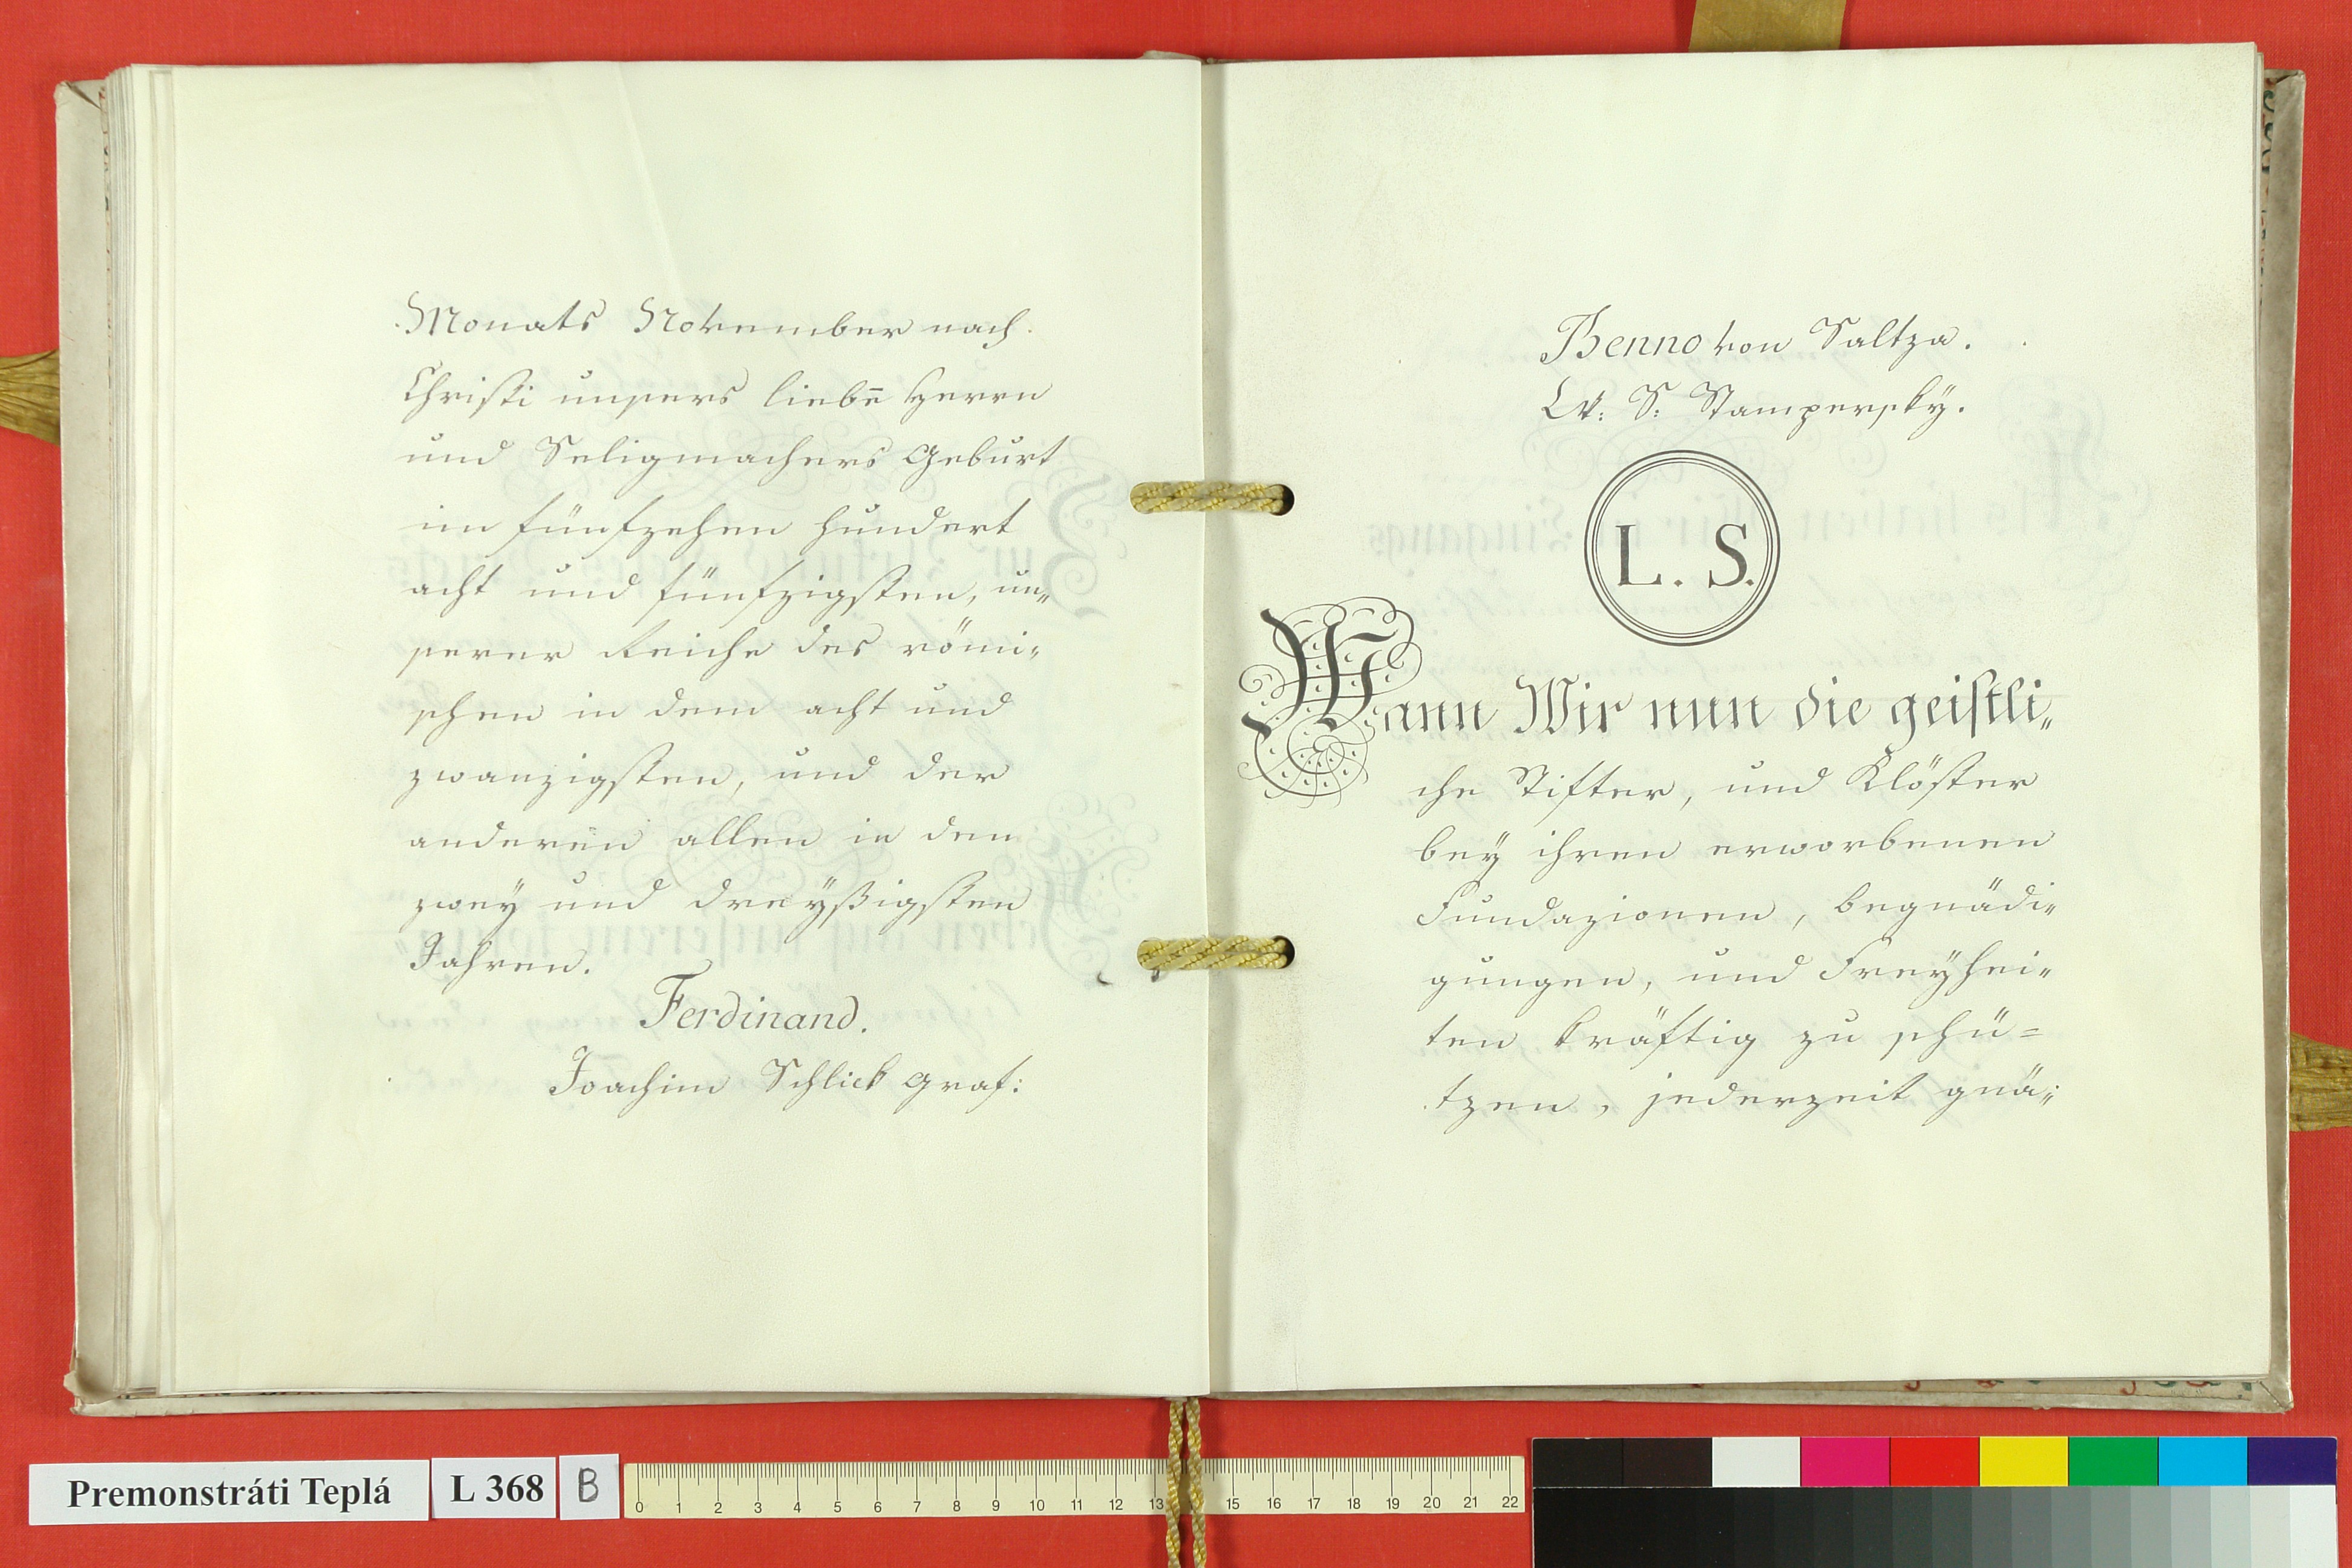 Monats November nach
Christi unsers liebē Herrn
und Seligmachers Geburt
im fünfzehen hundert
acht und fünfzigsten, un„
serer Reiche des römi„
schen in dem acht und
zwanzigsten, und der
anderen allen in den
zwey und dreyßigsten
Jahren.
Ferdinand.
Joachim Schlick Graf:
Benno von Saltza.
S: Stampersky.
L. S.
Wann Wir nun die geistli„
che Stifter, und Klöster
bey ihren erworbenen
Fundazionen, begnädi„
gungen, und Freyhei„
ten kräftig zu schü=
tzen, jederzeit gnä„
Premonstráti Teplá L 368 B
0 1 2 3 4 5 6 7 8 9 10 11 12 13 15 16 17 18 19 20 21 22